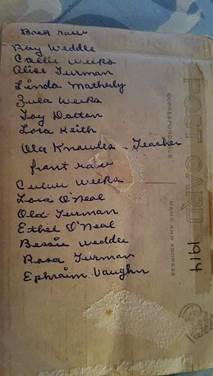 Back row
Ray Weddle
Callie Weeks
Alice Turman
Linda Matherly
Zula Weeks
Toy Dotton
Lora Keith
Ola Knowles - Teacher
front row
Weeks
Lora O'Neal
Turman
Ethel O'Neal
Bessie Weddle
Rosa Turman
Ephraim Vaughn
CORRESPONDENCE
NAME AND ADDRESS
1914